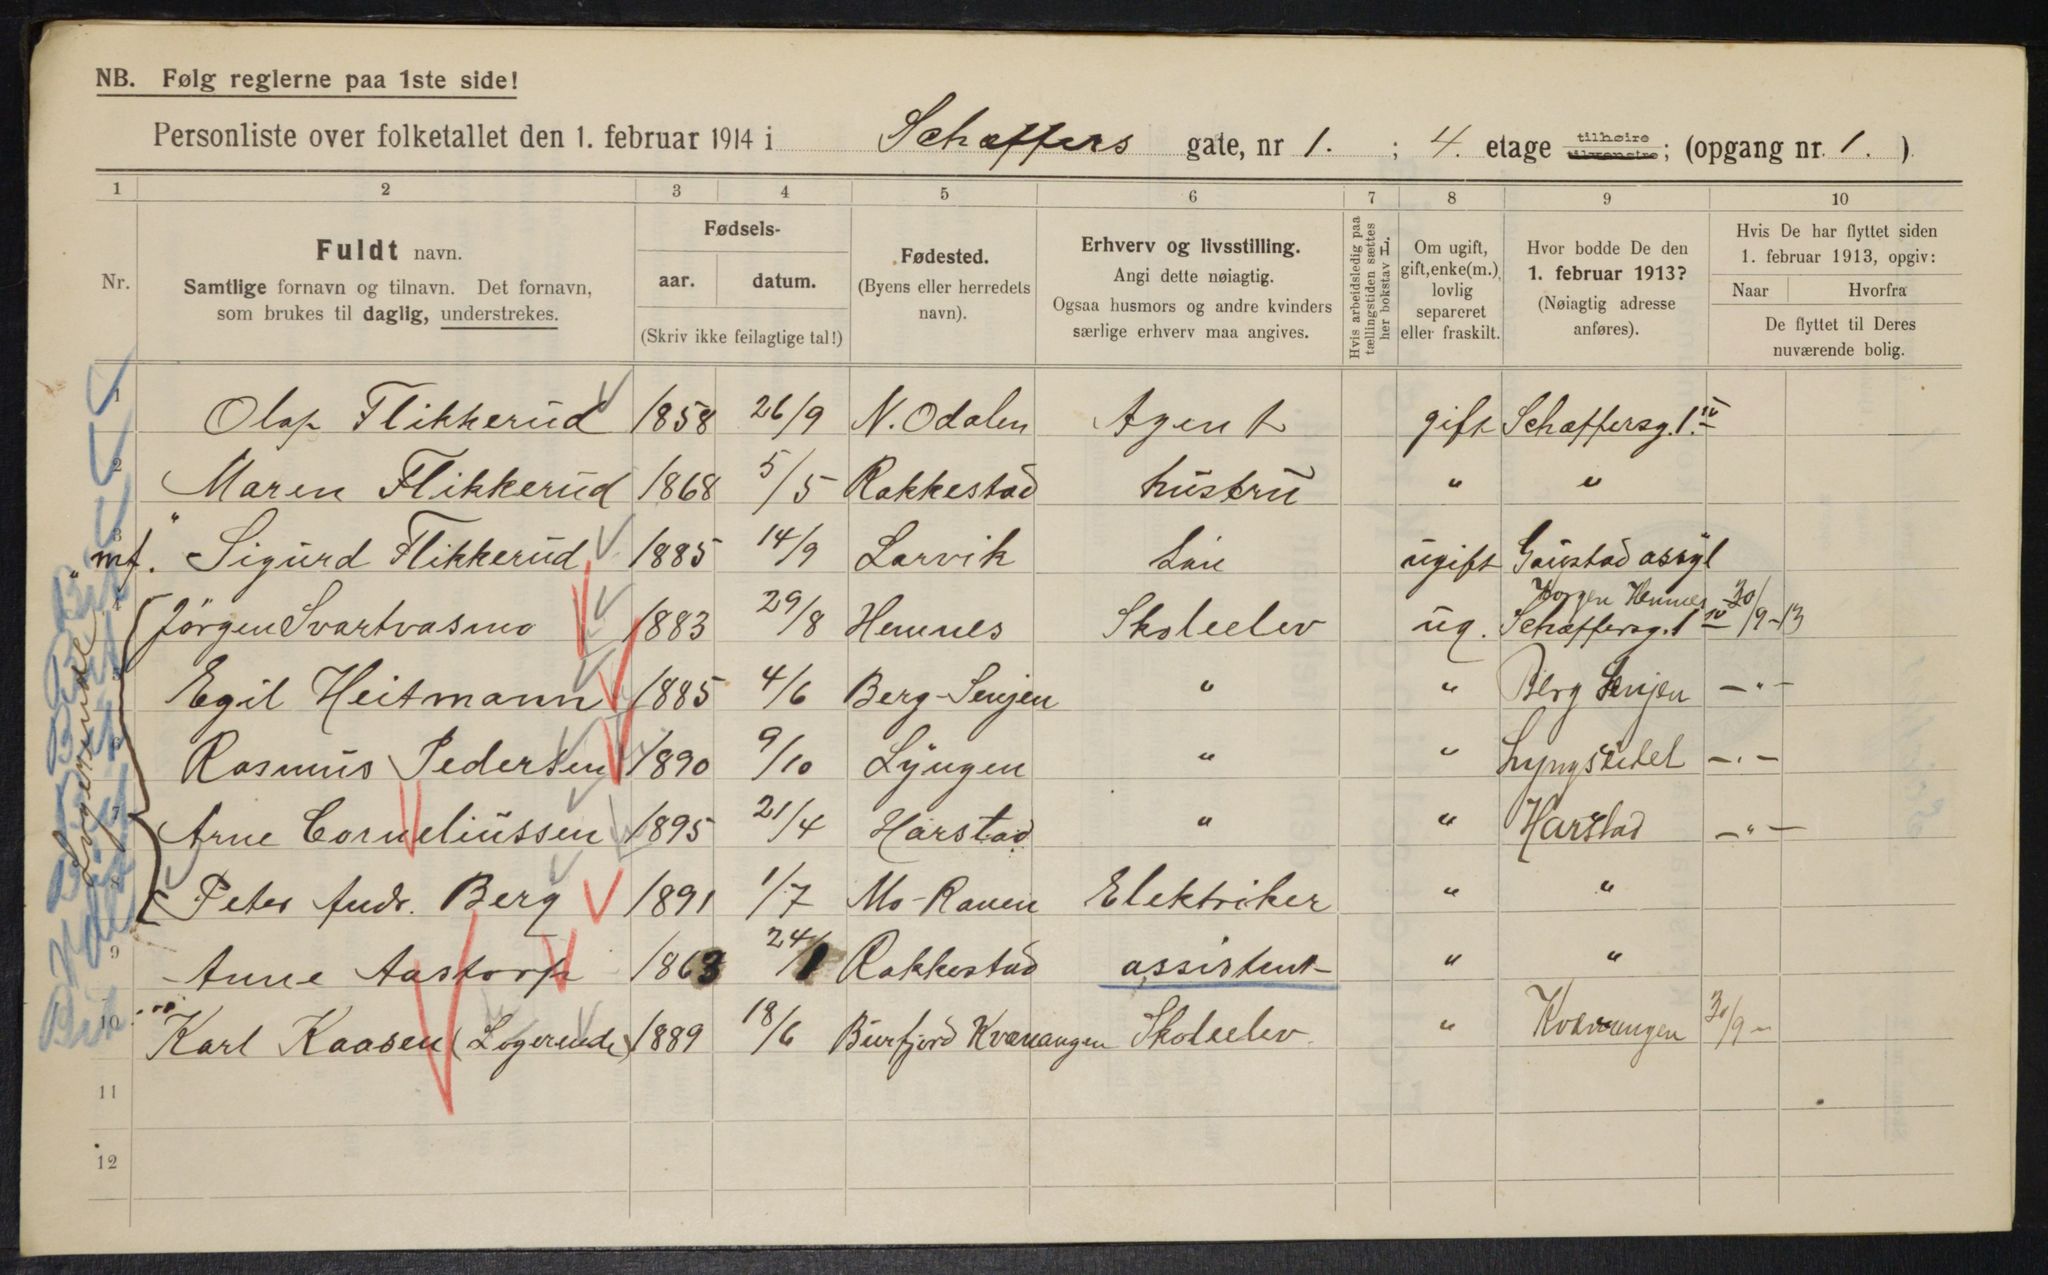 NB. Følg reglerne paa 1ste side!
Personliste over folketallet den 1. februar 1914 i Schæffers gate, nr 1. ; 4. etage tilhøire tilvenstre; (opgang nr. 1. )
1 2 3 4 5 6 7 8 9 10
Nr.
Fuldt navn.
Samtlige fornavn og tilnavn. Det fornavn,
som brukes til daglig, understrekes.
Fødsels-
aar. datum.
(Skriv ikke feilagtige tal!)
Fødested.
(Byens eller herredets
navn).
Erhverv og livsstilling.
Angi dette nøiagtig.
Ogsaa husmors og andre kvinders
særlige erhverv maa angives.
Hvis arbeidsledig paa
tællingstiden sættes
her bokstav H.
Om ugift,
gift, enke(m.),
lovlig
separeret
eller fraskilt.
Hvor bodde De den
1. februar 1913?
(Nøiagtig adresse
anføres).
Hvis De har flyttet siden
1. februar 1913, opgiv:
Naar Hvorfra
De flyttet til Deres
nuværende bolig.
1 Olaf Flikkerud 1858 26/9 N. Odalen Agent gift Schæffersg. 1. IV
2 Maren Flikkerud 1868 5/5 Rakkestad hustru " "
3 "mf." Sigurd Flikkerud 1885 14/9 Larvik ugift Gaustad asyl
4 Jørgen Svartvasmo 1883 29/8 Hemnes Skoleelev ug. Korgen Hemnes Schæffersg. 1 IV 30/9-13
5 Egil Heitmann 1885 4/6 Berg-Senjen " " Berg Senjen -"-
6 Rasmus Pedersen 1890 9/10 Lyngen " " Lyngseidet -"-
7 Arne Corneliussen 1895 21/4 Harstad " " Harstad -"-
8 Peter Andr. Berg 1891 1/7 Mo-Ranen Elektriker " "
9 Anne Aastorp 1863 24/1 Rakkestad assistent " "
10 Karl Kaasen (Logerende) 1889 18/6 Burfjord Kvænangen Skoleelev " Kvænangen 30/9 -
11
12
Logerende